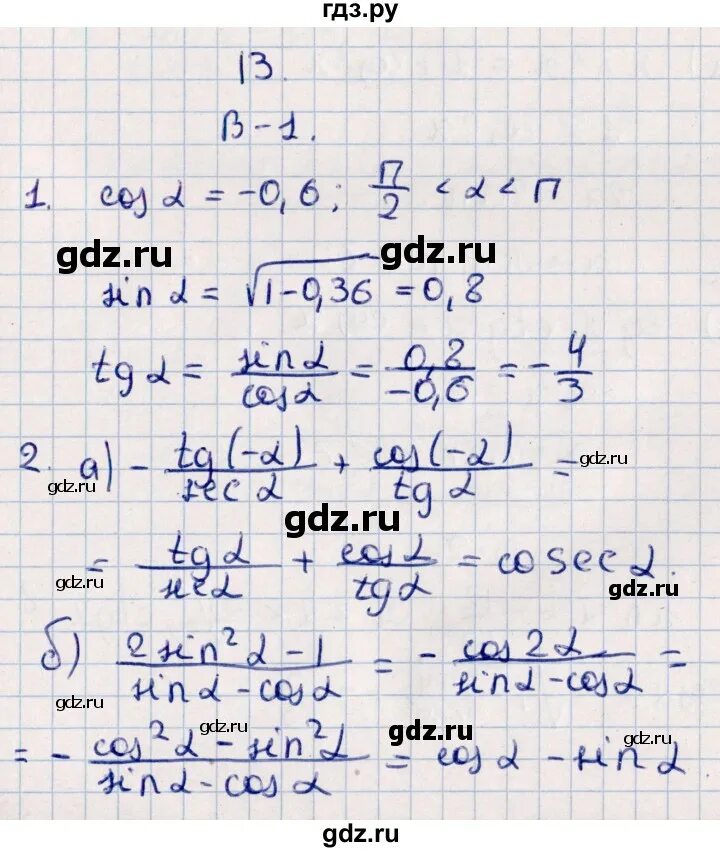 гдз.ру
13.
В-1.
1. cos α = -0,6; π/2 < α < π
gdz.ru gdz.ru
sin α = √(1-0,36) = 0,8
tg α = sin α/cos α = 0,8/-0,6 = -4/3
2. а) - tg(-α)/sec α + cos(-α)/tg α =
gdz.ru gdz.ru
gdz.ru
= tg α/sec α + cos α/tg α = cosec α.
gdz.ru gdz.ru
б) 2sin²α-1/sin α-cos α = - cos2α/sin α-cos α =
gdz.ru
= - cos²α-sin²α/sin α-cos α = cos α - sin α
gdz.ru gdz.ru gdz.ru
gdz.ru